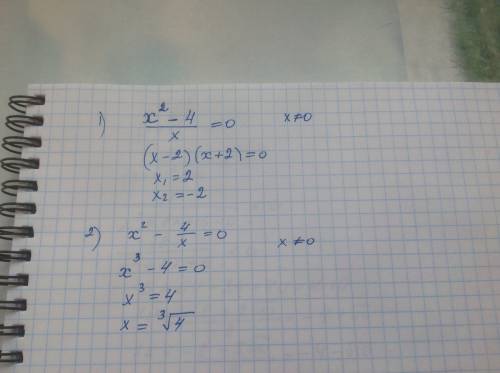 1) x² - 4 / x = 0 x ≠ 0
(x-2)(x+2)=0
x₁ = 2
x₂ = -2
2) x² - 4/x = 0 x ≠ 0
x³ - 4 = 0
x³ = 4
x = ³√4